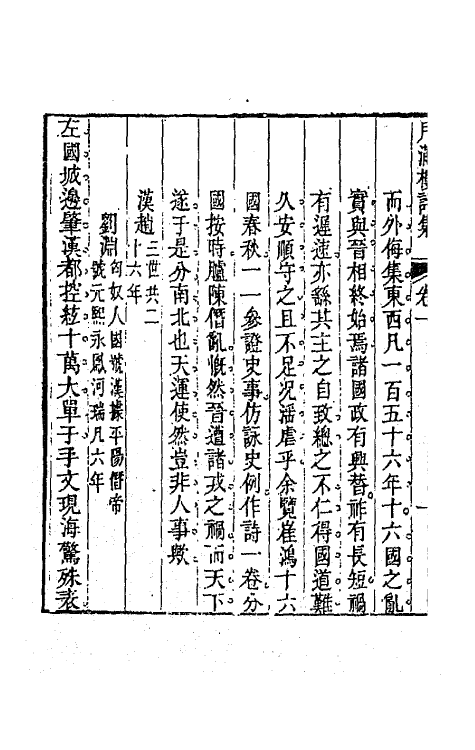 月滿樓詩集 卷一 一
而外侮集東西凡一百五十六年十六國之亂
實與晉相終始焉諸國政有興替祚有長短禍
有遲速亦繇其主之自致總之不仁得國道難
久安順守之且不足况滛虐乎余覽崔鴻十六
國春秋一一參證史事仿詠史例作詩一卷分
國按時臚陳僭亂慨然晉遭諸戎之禍而天下
遂于是分南北也天運使然豈非人事歟
漢趙三世共二十六年
劉淵匈奴人國號漢據平陽僭帝號元熙永鳳河瑞凡六年
左國城邊肇漢都控絃十萬大單于手文現海驚殊表